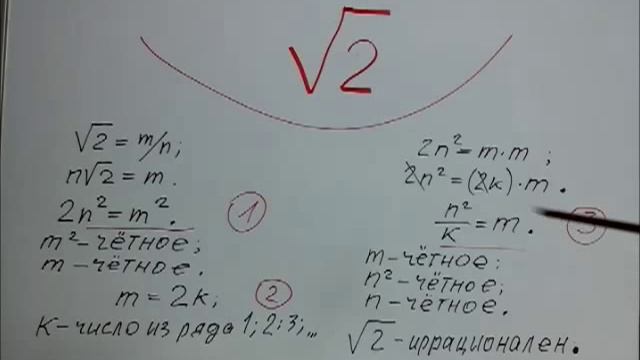 √2
√2 = m/n;
n√2 = m.
2n² = m². ①
m² - чётное;
m - чётное.
m = 2k; ②
k - число из ряда 1; 2; 3; ...
2n² = m·m ;
2n² = (2k)·m.
n²/k = m. ③
m - чётное;
n² - чётное;
n - чётное.
√2 - иррационален.